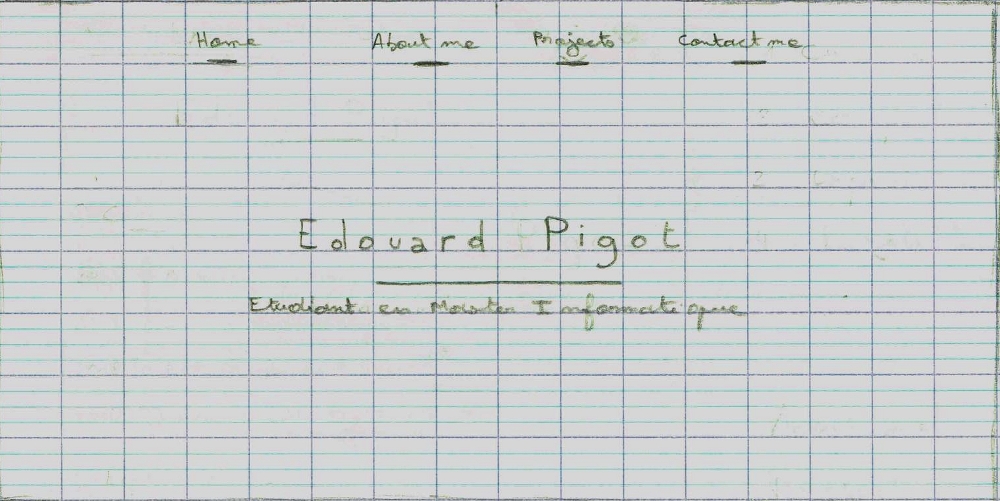 Home About me Projects Contact me
Edouard Pigot
Etudiant en Master Informatique